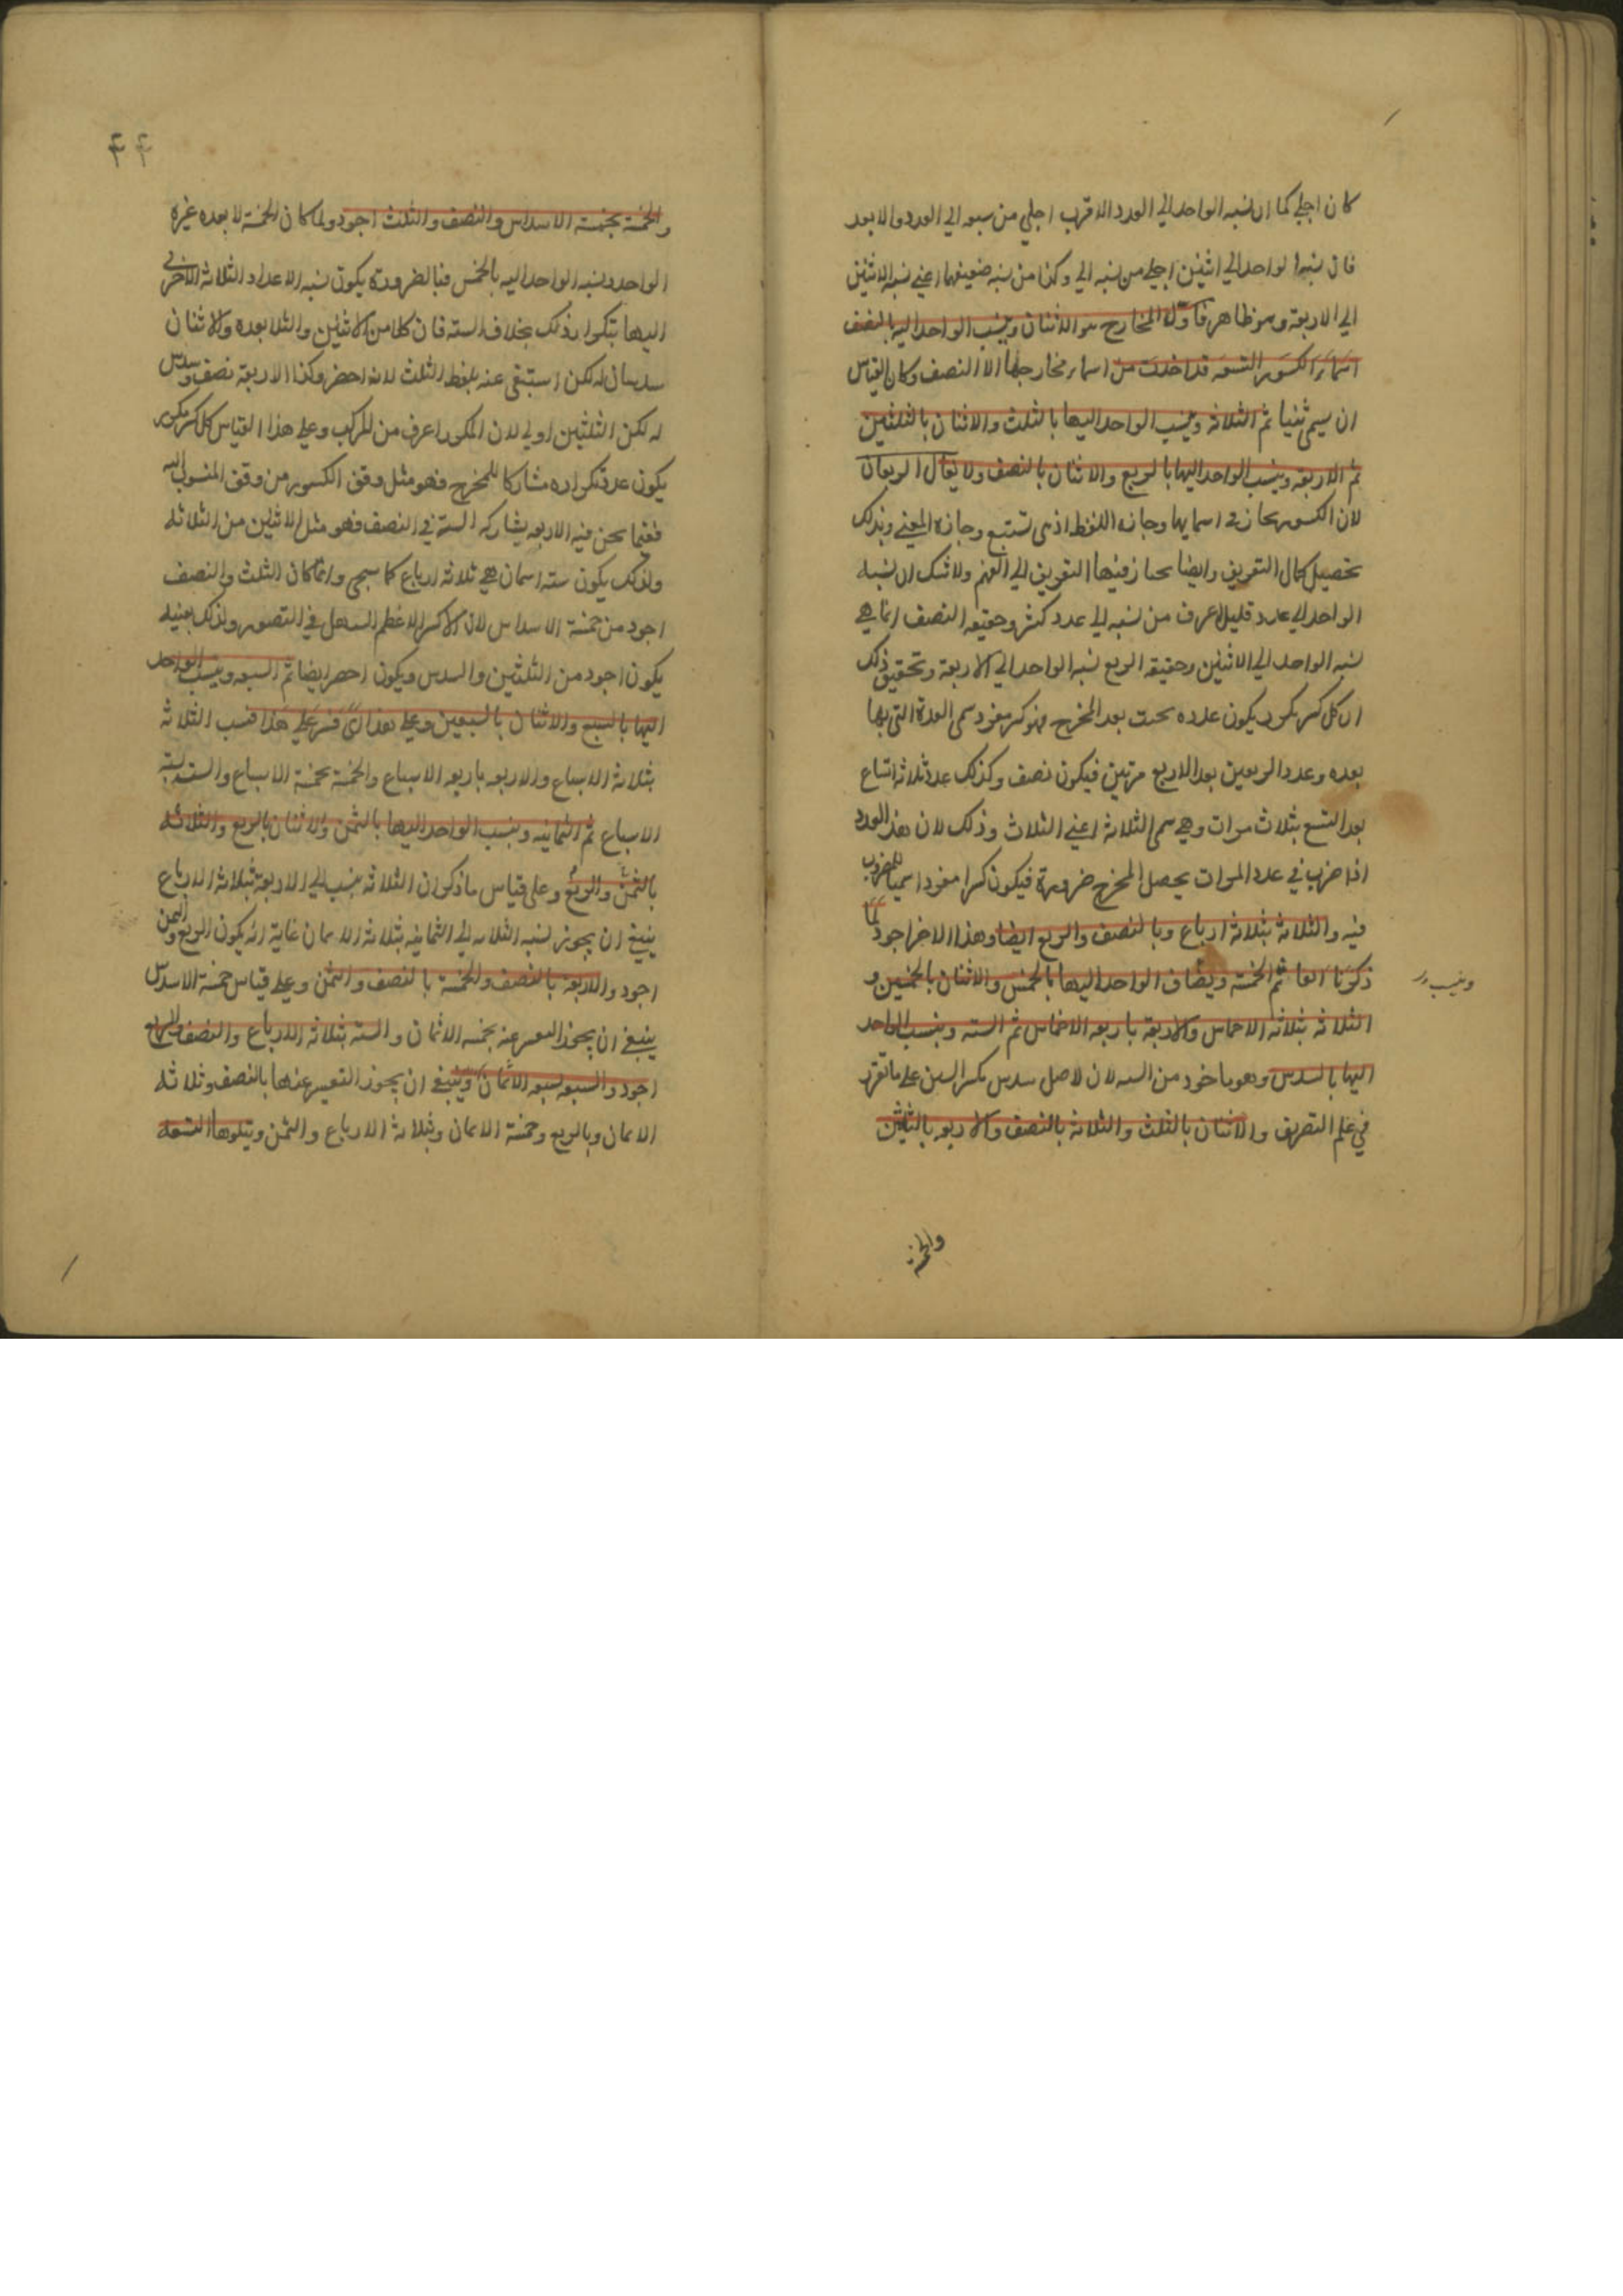 كان اجلي كما ان نسبه الواحد الي العدد الاقرب اجلي من الي العدد الابعد
فان نسبه الواحد الي اثنين اجلي من نسبه الي وكذا من نسبه ضعيفهما اعني نسبه الاثنين
الي الاربعة وهو ظاهر فاوّل المخارج هو الاثنان وينسب الواحد اليه بالنصف
اسماء الكسور التسعه قد اخذت من اسماء مخارجها الا النصف وكان القياس
ان يسمي ثنيا ثم الثلاثه وينسب الواحد اليها بالثلث والاثنان بالثلثين
ثم الاربعه وينسب الواحد اليها بالربع والاثنان بالنصف ولا يقال الربعان
لان الكسور مجاز في اسمايها وجازه اللفظ تستتبع وجازه المعني وبذلك
تحصيل كمال التعريف وايضا التعريف الي الفهم ولا شك ان نسبه
الواحد الي عدد قليل اعرف من نسبه الي عدد كثير وحقيقه النصف انما هي
نسبه الواحد الي الاثنين وحقيقه الربع نسبه الواحد الي الاربعة وتحقيق ذلك
ان كل كسر مكرر يكون عدده بحيث يعد المخرج فهو كسر مفرد سمي العدة التي بها
يعده وعدد الربعين يعد الاربع مرتين فيكون نصف وكذلك عدد ثلاثه اتساع
يعد التسع بثلاث مرات وهي سمي الثلاثه اعني الثلاث وذلك لان هذا العدد
اذا ضرب في عدد المرات يحصل المخرج ضرورة فيكون كسرا مفردا سميا للمضروب
فيه والثلاثة بثلاثة ارباع وبالنصف والربع ايضا وهذا الاخر اجود لما
ذكرنا انفا ثم الخمسة ويضاف الواحد اليها بالخمس والاثنان بالخمسين و
وينسب
الثلاثه بثلاثه الاخماس والاربعة باربعه الاخماس ثم السته وينسب الواحد
اليها بالسدس وهو ماخوذ من السته لان الاصل سدس بكسر السين علي ما تقرر
في علم التصريف والاثنان بالثلث والثلاثه بالنصف والاربعه بالثلثين
والخمسة
٤٤
والخمسة بخمسة الاسداس والنصف والثلث اجود ولما كان الخمسة لا يعده غيره
الواحد ونسبه الواحد اليه بالخمس فبالضرورة يكون نسبه الاعداد الثلاثه الاخري
اليها بتكرار ذلك بخلاف السته فان كلا من الاثنين والثلاثه يعده والاثنان
سدسان له لكن استبقي عنه بلفظ الثلث لانه اخصر وكذا الاربعة نصف وسدس
له لكن الثلثين اولي لان المكرر اعرف من المركب وعلي هذا القياس كل كسر مكرر
يكون عدد تكراره مشاركا للمخرج فهو مثل وفق الكسور من وفق المنسوب اليه
ففيما نحن فيه الاربعه يشاركه السته في النصف فهو مثل الاثنين من الثلاثه
ولذلك يكون سته اثمان هي ثلاثه ارباع كما سيجي وانما كان الثلث والنصف
اجود من خمسة الاسداس لان الكسر الاعظم اسهل في التصور ولذلك بعينه
يكون اجود من الثلثين والسدس ويكون اخصر ايضا ثم السبعه وينسب الواحد
اليها بالسبع والاثنان بالسبعين وعلي هذا اي قس علي هذا فنسب الثلاثه
بثلاثة الاسباع والاربعه باربعه الاسباع والخمسة بخمسة الاسباع والسته بستة
الاسباع ثم الثمانيه وينسب الواحد اليها بالثمن والاثنان بالربع والثلاثه
بالثمن والربع وعلي قياس ما ذكر ان الثلاثه ينسب الي الاربعة بثلاثة الارباع
ينبغي ان يجوز نسبه الثلاثه الي الثمانيه بثلاثه الاثمان غاية انه يكون الربع والثمن
اجود والاربعة بالنصف والخمسة بالنصف والثمن وعلي قياس خمسة الاسداس
ينبغي ان يجوز التعبير عنه بخمسه الاثمان والسته بثلاثه الارباع والنصف والربع
اجود والسبعه بسبعه الاثمان وينبغي ان يجوز التعبير عنها بالنصف وثلاثه
الاثمان وبالربع وخمسة الاثمان وبثلاثة الارباع والثمن ويتلوها التسعه